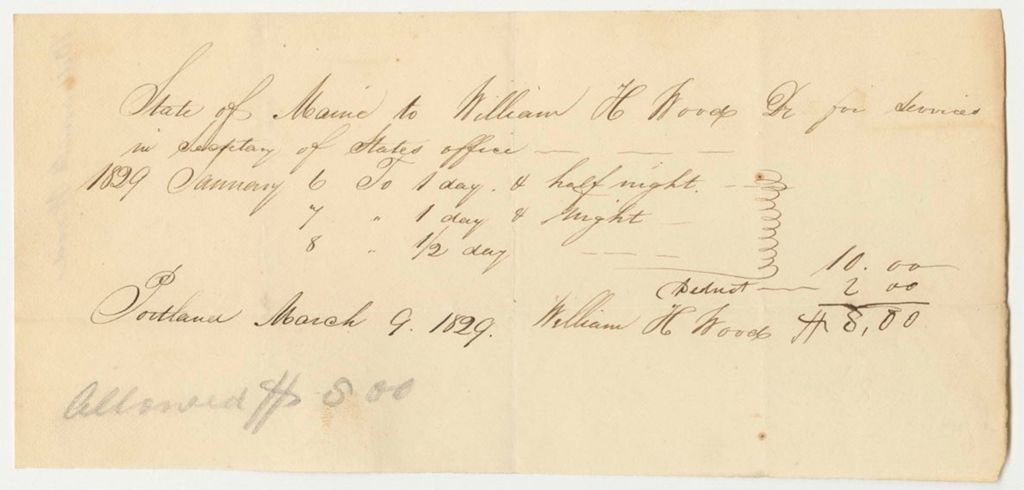 State of Maine to William H Wood Dr for Services
in Secretary of States office — — —
1829 January 6 To 1 day. & half night. —
7 " 1 day & night —
8 " 1/2 day — — —
10.00
Deduct — 2 00
Portland March 9. 1829. William H Wood $8,00
Allowed $8 00